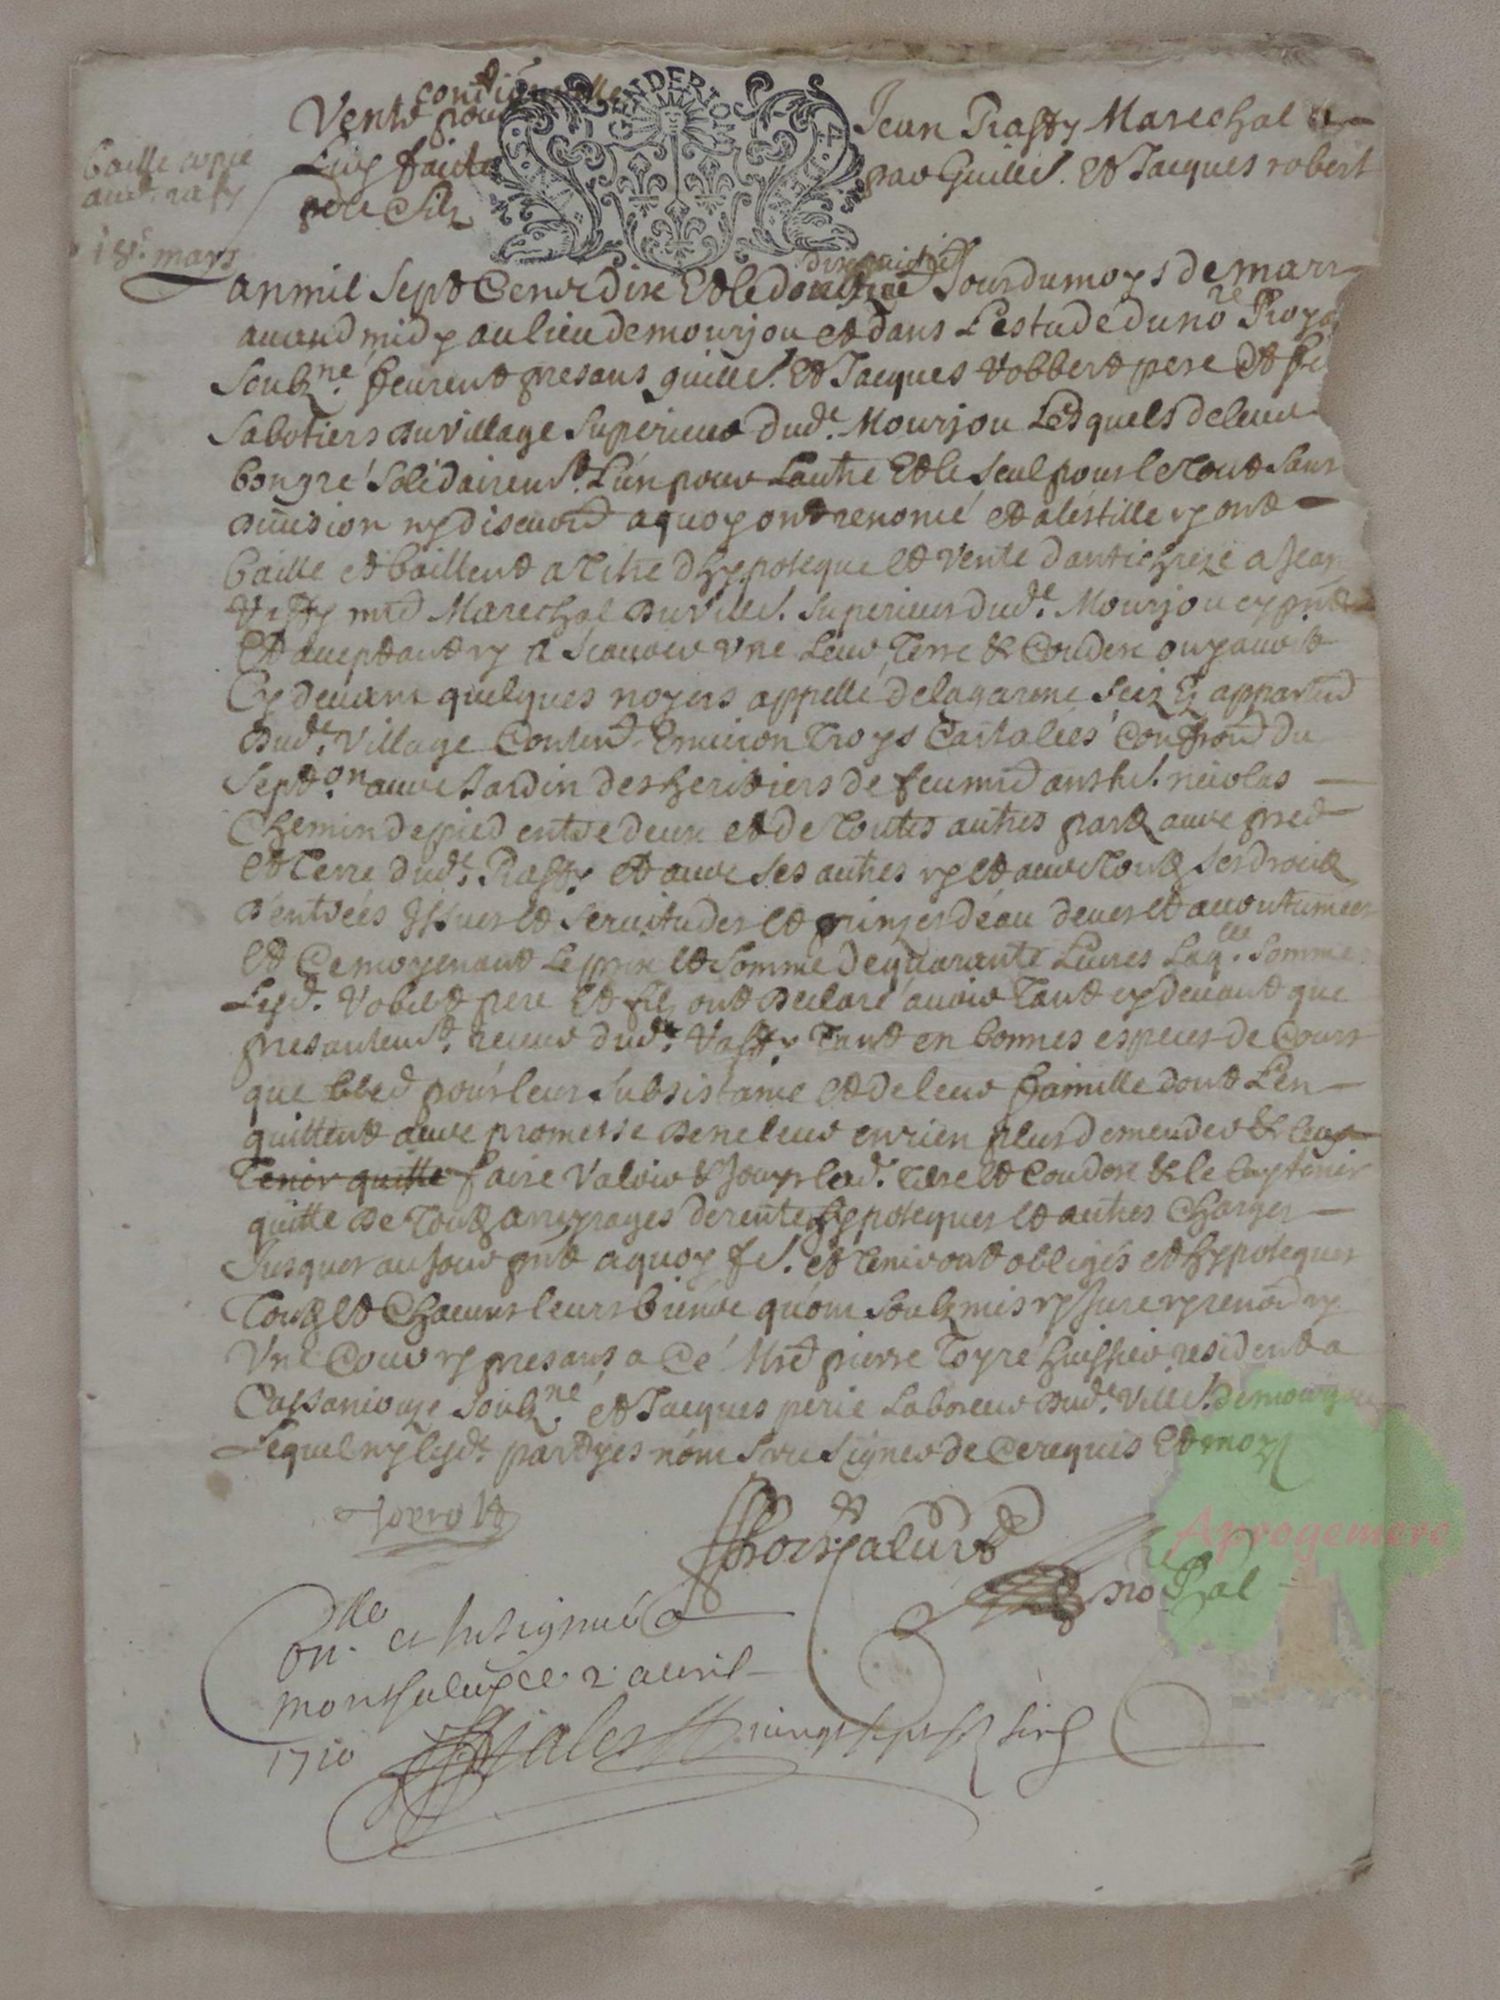 conditionnelle
Vente pour Jean Raffy Marechal
Luy faite par Guille. et Jacques robert
pere & filz
GEN DE RIOM
baille copie
aud. raffy
18e. mars
dixhuitie
Lan mil sept cens dix et le Jour du moys de mars
avand midy au lieu de mourjou et dans Lestude du nore. Roya
soubzne. feurent presans guille. et Jacques robbert pere et fi
sabotiers du village superieur dude. Mourjou Lesquels de leur
bon gre solidairemt. L'un pour Lautre et le seul pour le tout sans
division ny discution a quoy ont renoncé et a lestille y ont
baille et baillent a titre dhypoteque et vente dantichreze a Jean
raffy md Marechal du ville. superieur dude. Mourjou cy pnt
et acceptant y a scavoir une leur Terre & Couderc ou y avoit
Cy devant quelques noyers appellé delagarene scize es appartend
dude. village Contend. Environ Troys Cartalées Confrond du
septon. avec Jardin des heritiers de feu md anthe. neivolas
Chemin de pied entre deux et de toutes autres partz avec pred
et Terre dude. Raffy et avec ses autres et avec toutz ses droitz
dentrées Issues et servitudes et prinzes déau deues et acoutumées
et Ce moyenant Le prix et somme de quarante Livres Laqlle. somme
Lesd. robbert pere et filz ont declaré avoir Tant cy devant que
presantemt. receue dude. Raffy Tant en bonnes especes de Cours
que bled pour leur subsistance et de leur famille dont L'en
quittent avec promesse de ne leur en rien plus demender & luy
Tenir quitte faire valoir & Jouyr lad. terre et Couderc & le luy tenir
quitte de toutz arreyrages de rente hypoteques et autres Charges
Jusques au Jour pnt a quoy fe. et tenir ont obligés et hypoteques
Toutz et Chacuns leurs biens qu'ont soubzmis Jure renond
Une Cour presans a Cé Mre pierre Toyre huissier resident a
Cassaniouze soubzne. et Jacques perie Laboreur dude. ville. de mourjou
Lequel ny lesd. partyes nont sceu signer de Ce requis et moy
nore Ral
Con.lle et Insignué a
montsalvy ce 2 avril
1710